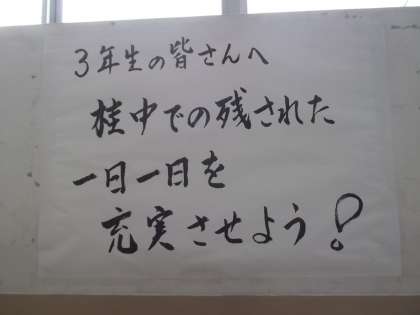 3年生の皆さんへ
桂中での残された
一日一日を
充実させよう!